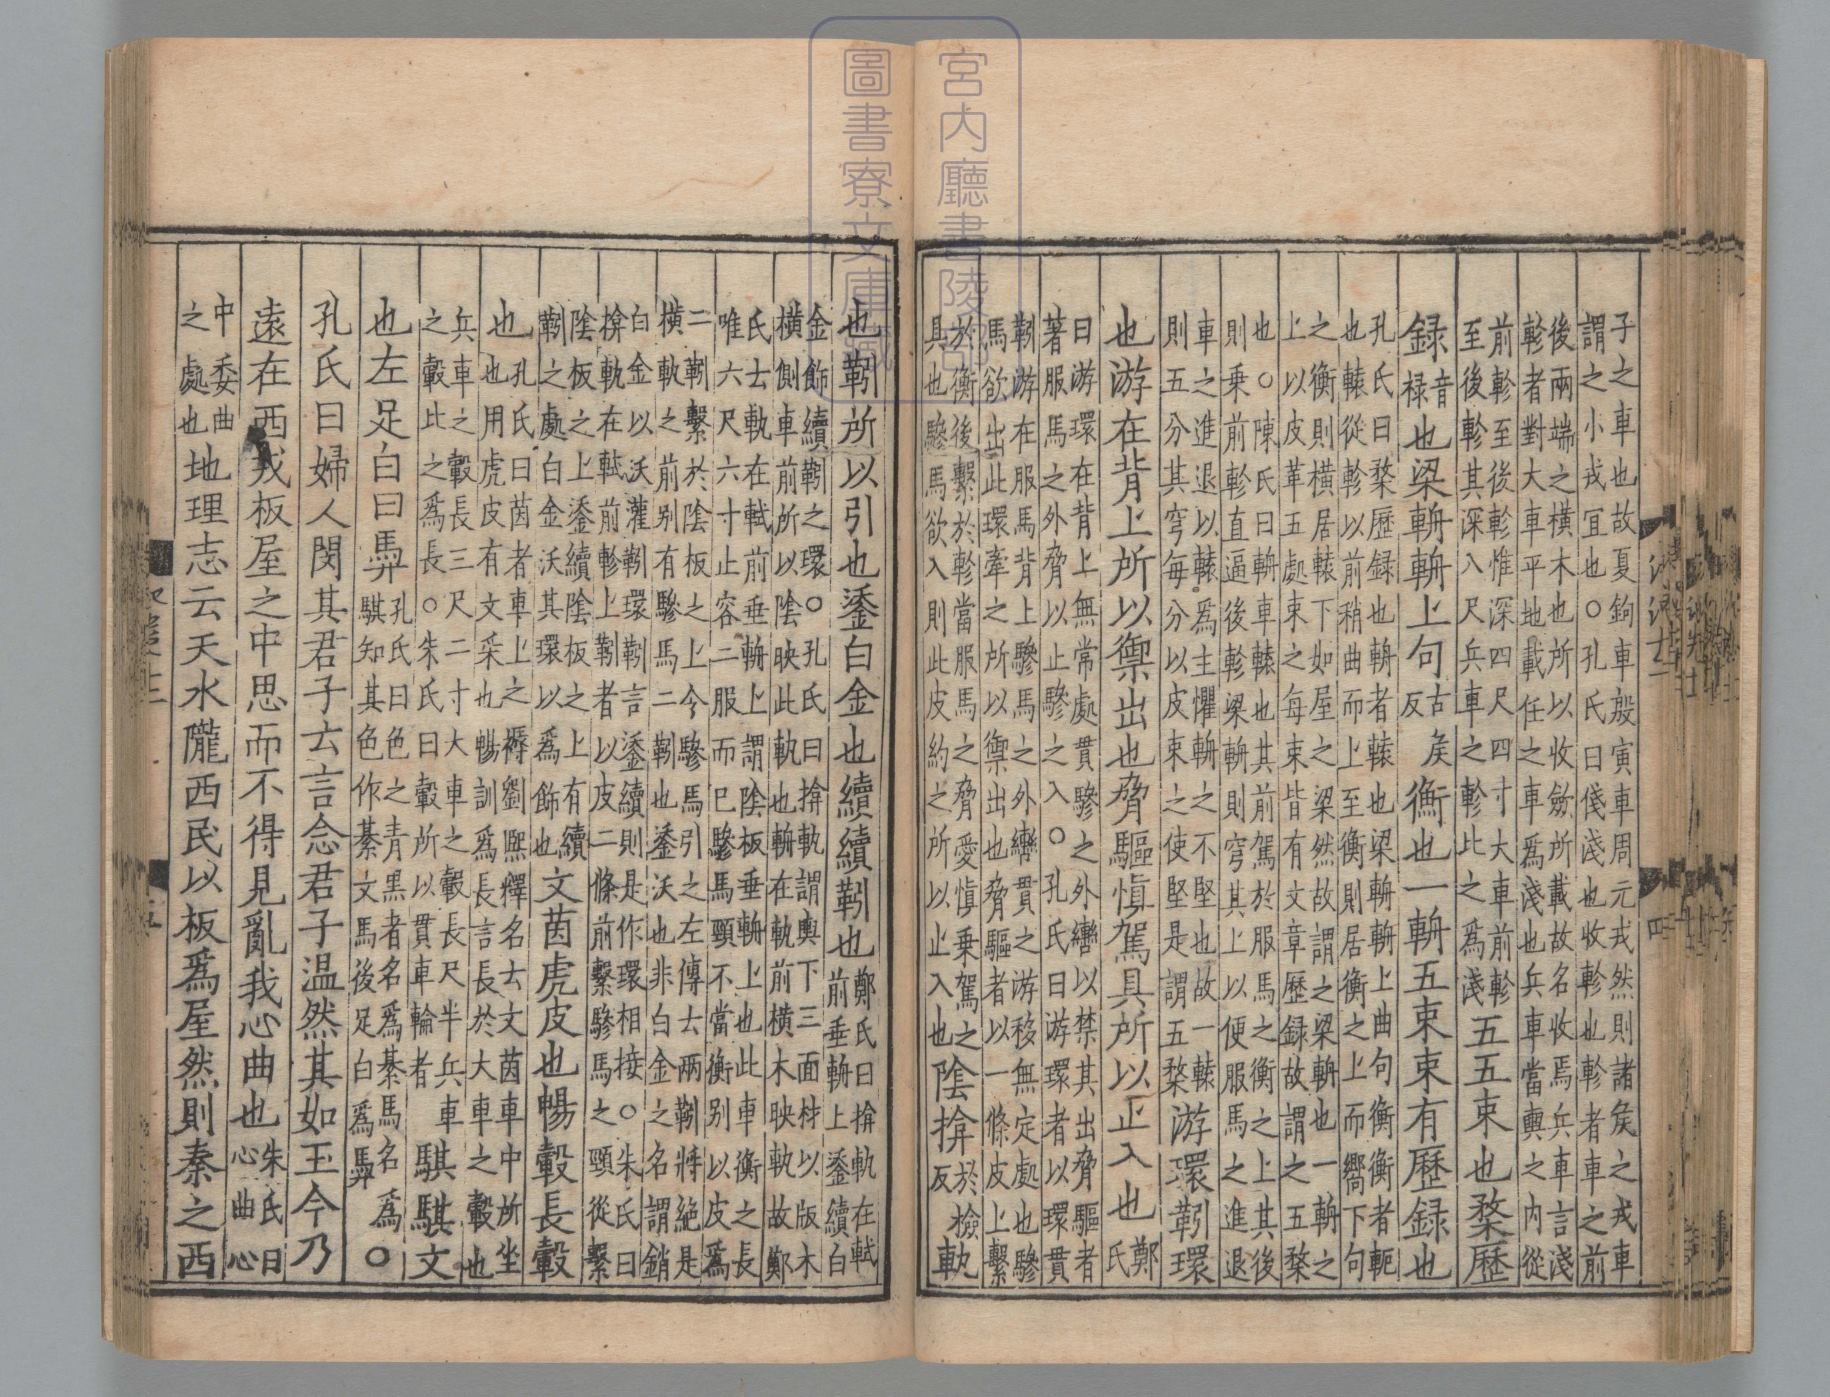 子之車也故夏鉤車殷寅車周元戎然則諸矦之戎車
謂之小戎冝也○孔氏曰俴淺也收軫也軫者車之前
後兩端之橫木也所以收斂所載故名收焉兵車言淺
軫者對大車平地載任之車爲淺也兵車當輿之內從
前軫至後軫惟深四尺四寸大車前軫
至後軫其深八尺兵車之軫此之爲淺
五五束也楘歷
録音禄也梁輈輈上句古矦反衡也一輈五束束有歷録也
孔氏曰楘歷録也輈者轅也梁輈輈上曲句衡衡者軛
也轅從軫以前稍曲而上至衡則居衡之上而嚮下句
之衡則橫居轅下如屋之梁然故謂之梁輈也一輈之
上以皮革五處束之每束皆有文章歷録故謂之五楘
也○陳氏曰輈車轅也其前駕於服馬之衡之上其後
則乗前軫直逼後軫梁輈則穹其上以便服馬之進退
車之進退以轅爲主懼輈之不堅也故一轅
則五分其穹每分以皮束之使堅是謂五楘
游環靷環
也游在背上所以禦出也脅驅慎駕具所以止入也鄭氏
曰游環在背上無常處貫驂之外轡以禁其出脅驅者
著服馬之外脅以止驂之入○孔氏曰游環者以環貫
靷游在服馬背上驂馬之外轡貫之游移無定處也驂
馬欲出此環牽之所以禦出也脅驅者以一條皮上繫
於衡後繫於軫當服馬之脅愛慎乗駕之
具也驂馬欲入則此皮約之所以止入也
陰揜於檢反軌
也靷所以引也鋈白金也續續靷也
鄭氏曰揜軌在軾
前垂輈上鋈續白
金飾續靷之環○孔氏曰揜軌謂輿下三面材以版木
橫側車前所以陰映此軌也輈在軌前橫木映軌故鄭
氏云軌在軾前垂輈上謂陰板垂輈上也此車衡之長
唯六尺六寸止容二服而巳驂馬頸不當衡別以皮爲
二靷繫於陰板之上令驂馬引之左傳云兩靷將絶是
橫軌之前別有驂馬二靷也鋈沃也非白金之名謂銷
白金以沃灌靷環靷言鋈續則是作環相接○朱氏曰
揜軌在軾前軫上靷者以皮二條前繫驂馬之頸從繫
陰板之上鋈續陰板之上有續
靷之處白金沃其環以爲飾也
文茵虎皮也暢轂長轂
也
孔氏曰茵者車上之褥劉熈釋名云文茵車中所坐
也用虎皮有文采也暢訓爲長言長於大車之轂也
兵車之轂長三尺二寸大車之轂長尺半兵車
之轂此之爲長○朱氏曰轂所以貫車輪者
騏騏文
也左足白曰馵
孔氏曰色之青黑者名爲綦馬名爲
騏知其色作綦文馬後足白爲馵
○
孔氏曰婦人閔其君子云言念君子温然其如玉今乃
遠在西戎板屋之中思而不得見亂我心曲也
朱氏曰
心曲心
中委曲
之處也
地理志云天水隴西民以板爲屋然則秦之西
宮内廳書陵部
圖書寮文庫藏